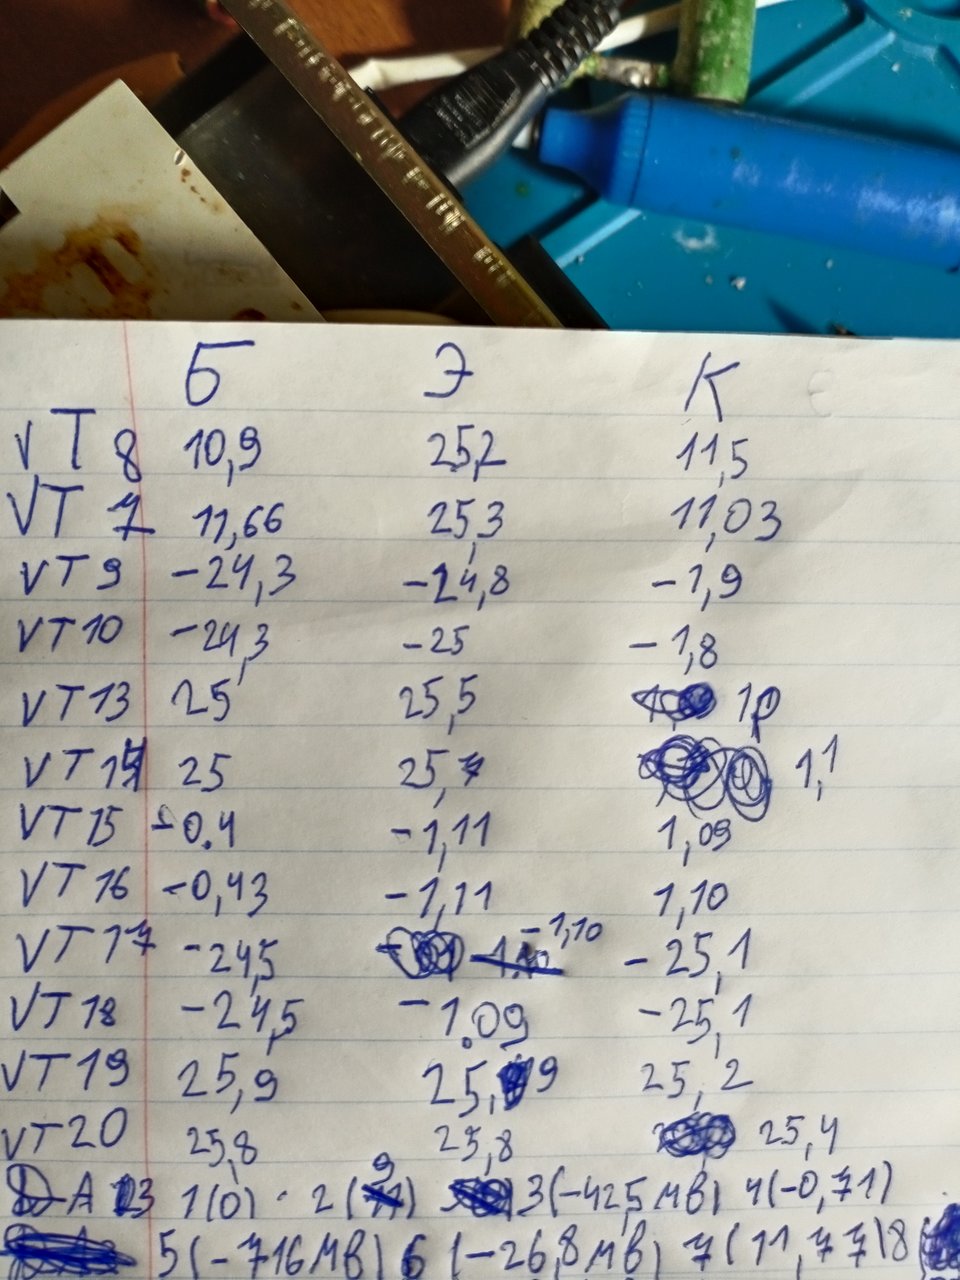 Б Э К
VT 8 10,9 25,2 11,5
VT 7 11,66 25,3 11,03
VT 9 -24,3 -24,8 -1,9
VT 10 -24,3 -25 -1,8
VT 13 25 25,5
VT 14 25 25, 1,1
VT 15 -0.4 -1,11 1,09
VT 16 -0,43 -1,11 1,10
VT 17 -24,5 -1,10 -25,1
VT 18 -24,5 -1.09 -25,1
VT 19 25,9 25,9 25,2
VT 20 25,8 25,8 25,4
DA 3 1(0) 2(9) 3(-42,5мв) 4(-0,71)
5(-716мв) 6(-26,8мв) 7(11,77) 8